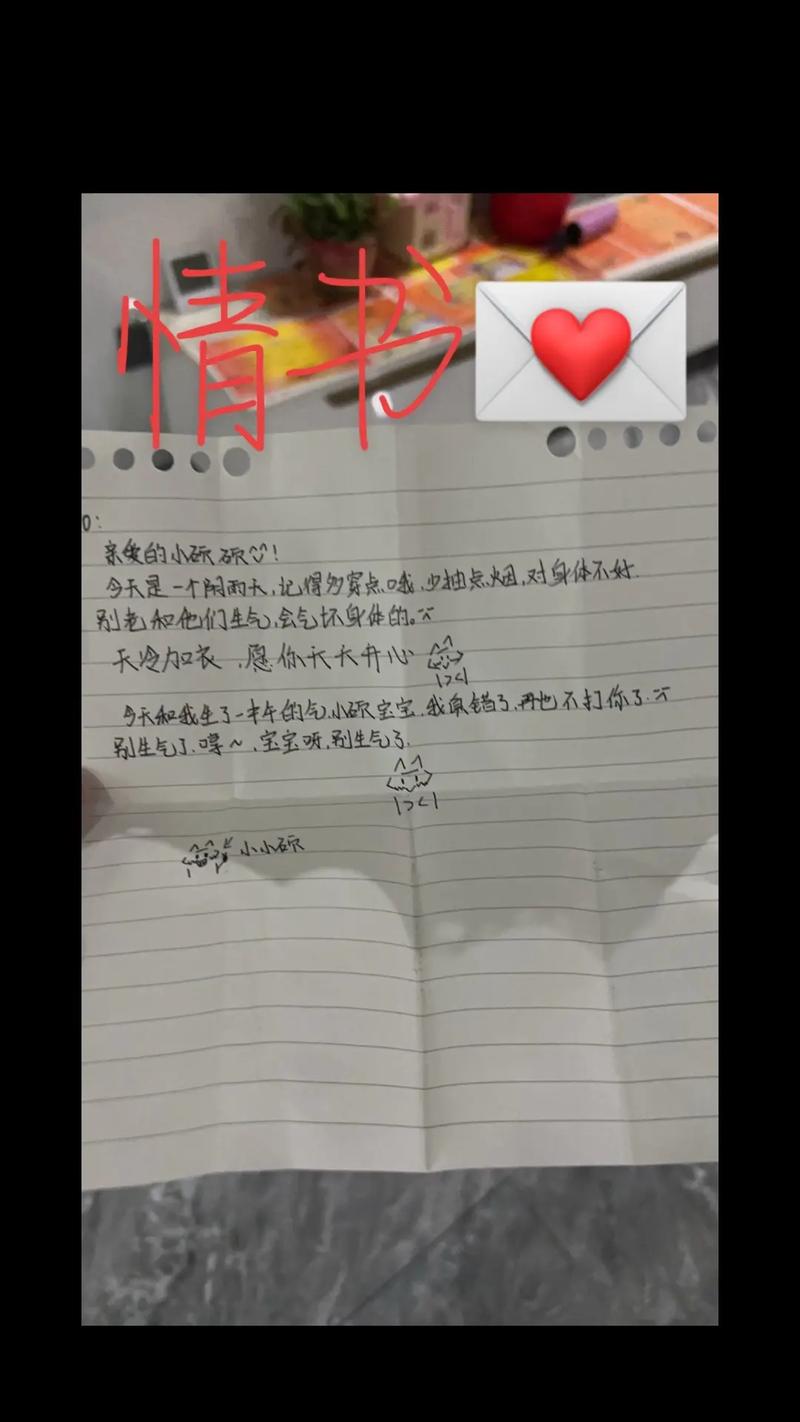 情书
O:
亲爱的小硕硕!
今天是一个阴雨天,记得多穿点哦,少抽点烟,对身体不好.
别老和他们生气,会气坏身体的。
天冷加衣,愿你天天开心
今天和我生了一半午的气,小硕宝宝,我真错了,再也不打你了.
别生气了.嘿~,宝宝呀,别生气了.
小小硕